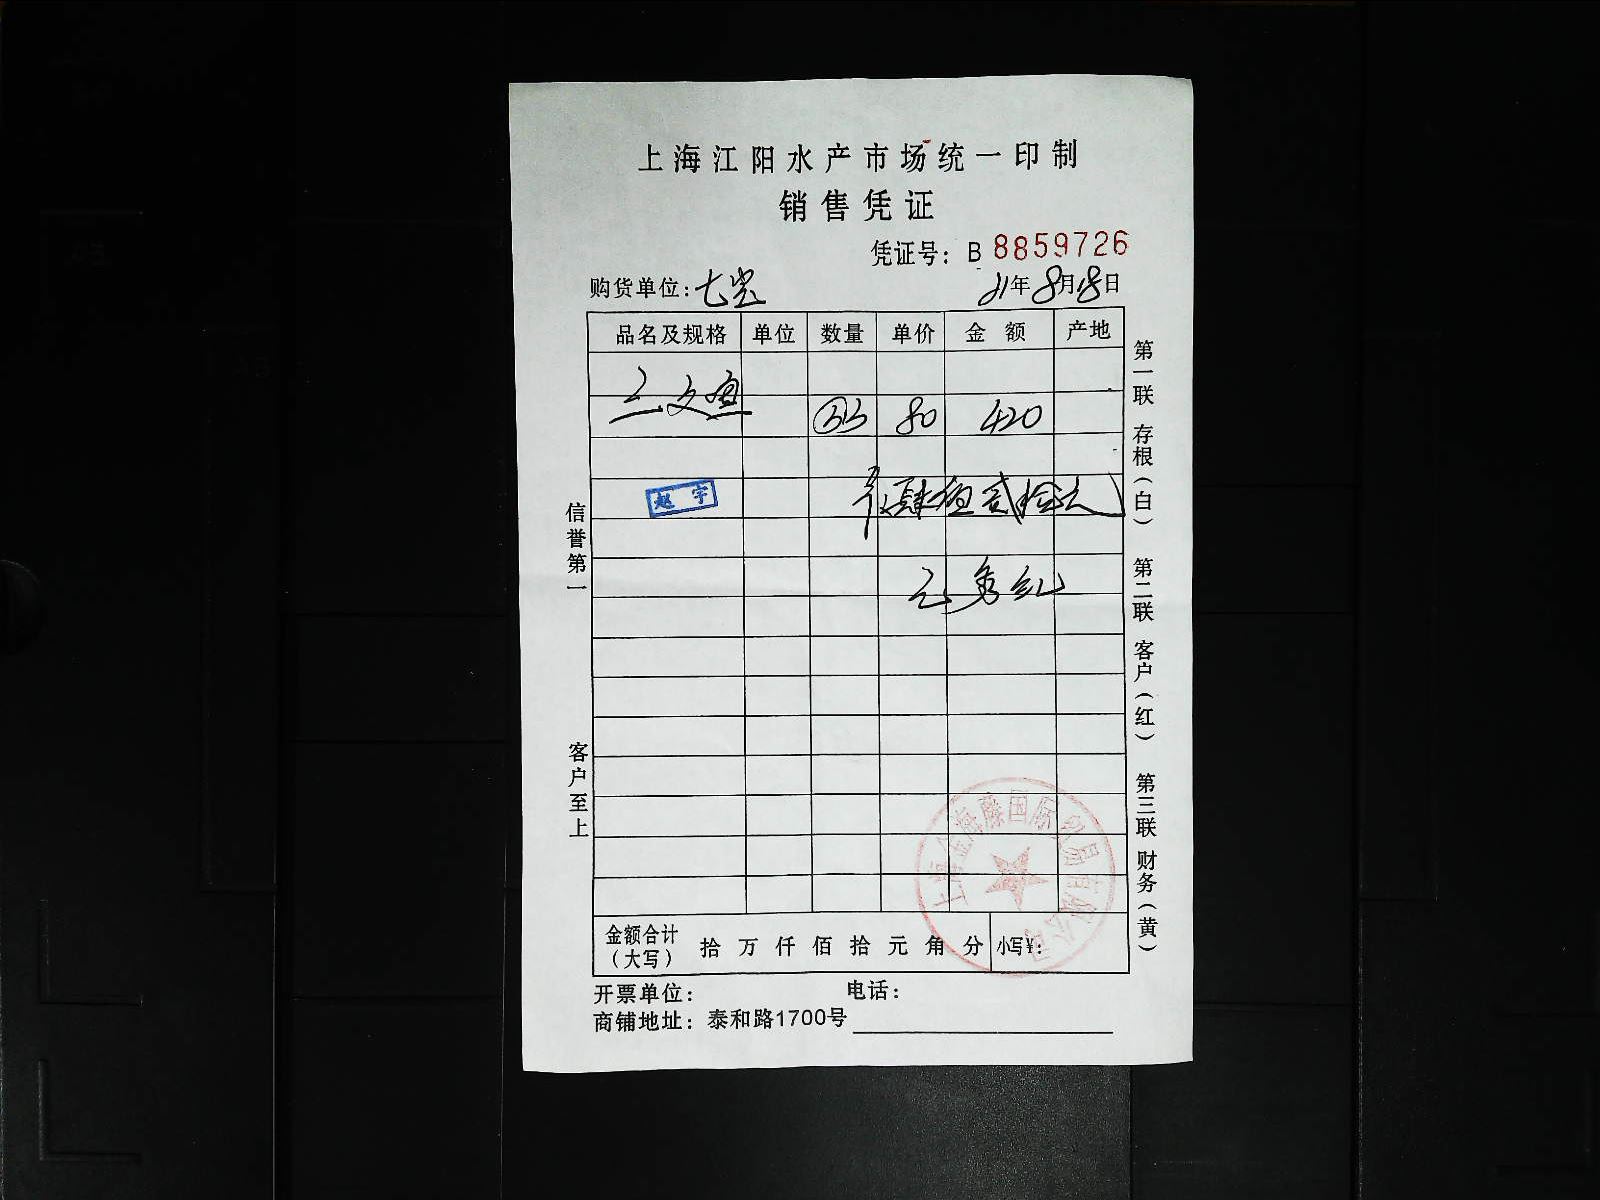 上海江阳水产市场统一印制
销售凭证
凭证号: B 8859726
购货单位: 七
21年8月18日
品名及规格 单位 数量 单价 金额 产地
三文鱼 80 420
肆佰贰拾元
赵宇
信誉第一
客户至上
第一联 存根(白) 第二联 客户(红) 第三联 财务(黄)
上海金海藤国际贸易有限公司
金额合计(大写) 拾 万 仟 佰 拾 元 角 分 小写¥:
开票单位: 电话:
商铺地址: 泰和路1700号